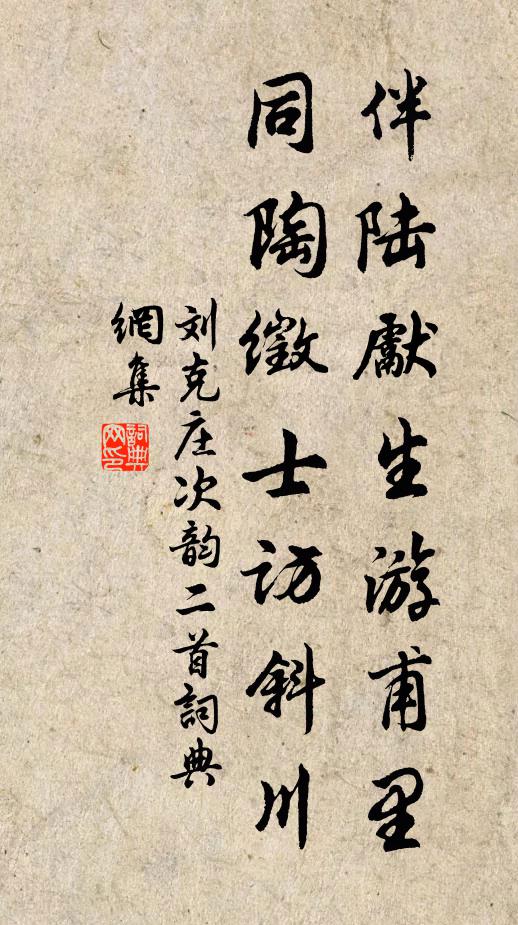 伴陆献生游甫里
同陶徵士访斜川
刘克庄次韵二首詞典
網集
詞典
网印